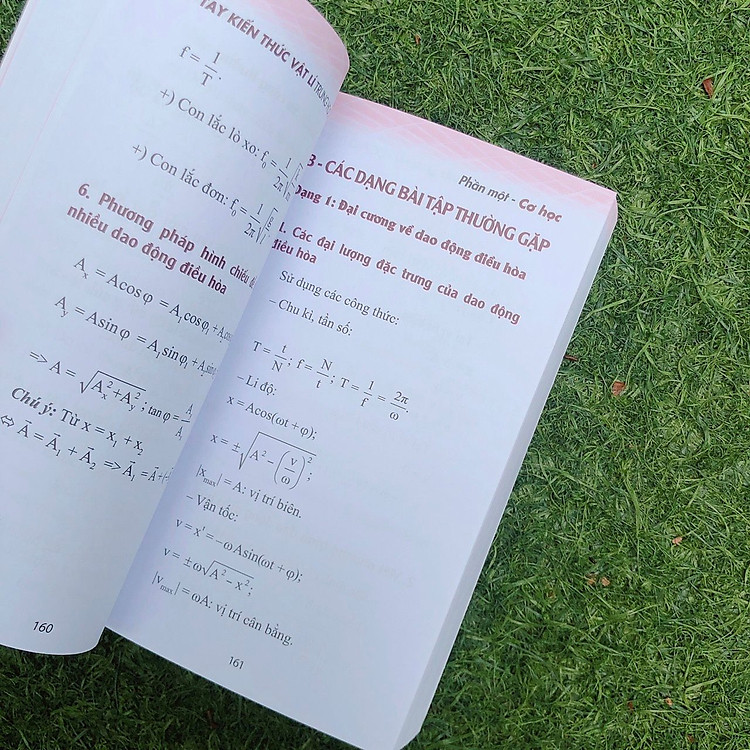 TAY KIẾN THỨC VẬT LÍ TRUNG
f = 1/T.
+) Con lắc lò xo: f₀ = 1/2π √
+) Con lắc đơn: f₀ = 1/2π √
6. Phương pháp hình chiếu
nhiều dao động điều hòa
Aₓ = Acosφ = A₁cosφ₁ +
Aᵧ = Asinφ = A₁sinφ₁ +
=> A = √(Aₓ² + Aᵧ²); tanφ =
Chú ý: Từ x = x₁ + x₂
⇔ Ā = Ā₁ + Ā₂ => Ā₁ = Ā +
160
Phần một - Cơ học
3 - CÁC DẠNG BÀI TẬP THƯỜNG GẶP
Dạng 1: Đại cương về dao động điều hòa
1. Các đại lượng đặc trưng của dao động
điều hòa
Sử dụng các công thức:
– Chu kì, tần số:
T = t/N; f = N/t; T = 1/f = 2π/ω.
– Li độ:
x = Acos(ωt + φ);
x = ±√(A² − (v/ω)²);
|xₘₐₓ| = A: vị trí biên.
– Vận tốc:
v = x' = −ωAsin(ωt + φ);
v = ±ω√(A² − x²);
|vₘₐₓ| = ωA: vị trí cân bằng.
161